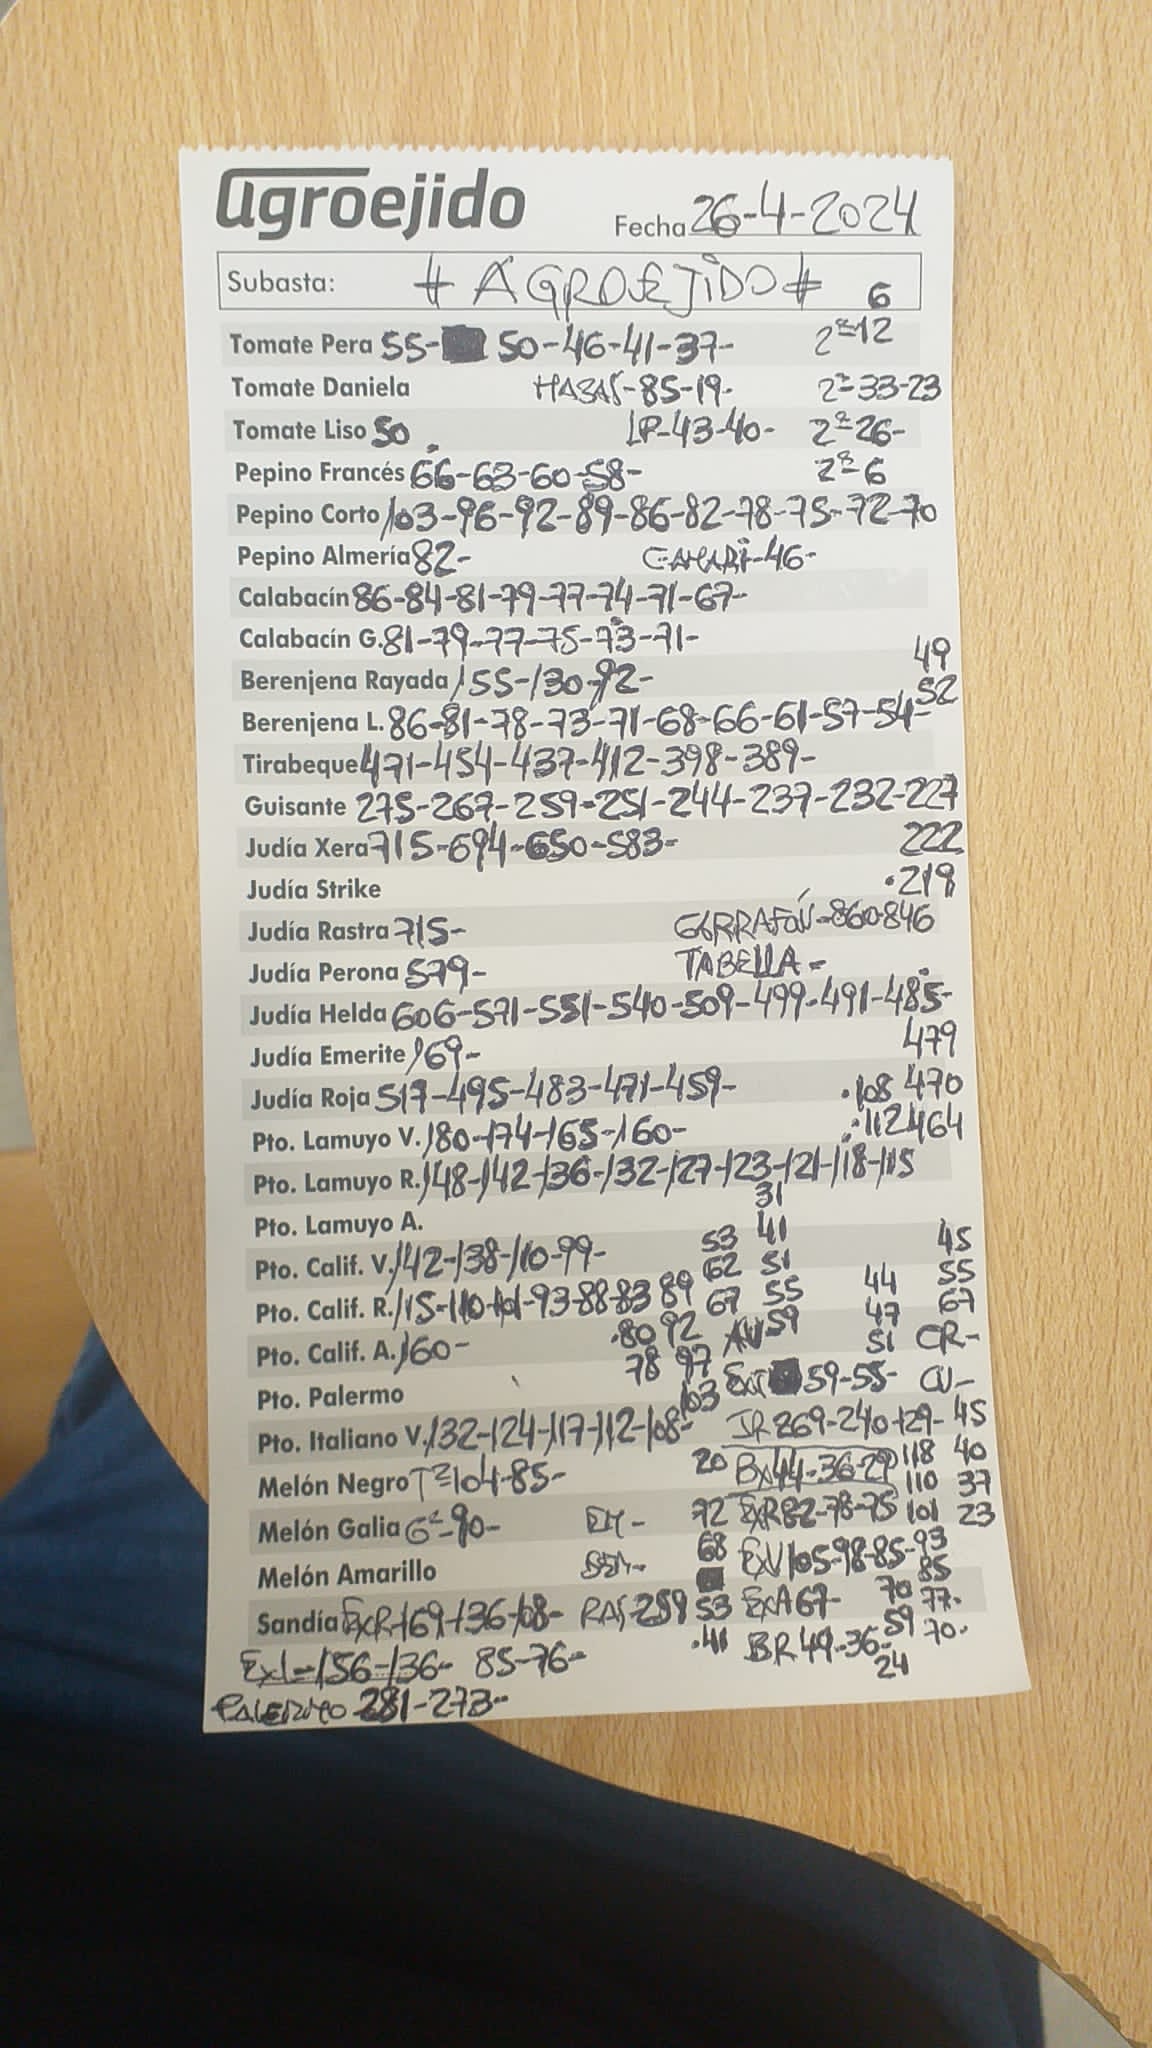 agroejido
Fecha 26-4-2024
Subasta: # AGROEJIDO # 6
Tomate Pera 55- 50-46-41-37- 2ª-12
Tomate Daniela HABAS-85-19- 2ª-33-23
Tomate Liso 50 LP-43-40- 2ª-26-
Pepino Francés 66-63-60-58- 2ª-6
Pepino Corto 103-96-92-89-86-82-78-75-72-70
Pepino Almería 82- CAMARI-46-
Calabacín 86-84-81-79-77-74-71-67-
Calabacín G. 81-79-77-75-73-71-
49
Berenjena Rayada 155-130-92- 52
Berenjena L. 86-81-78-73-71-68-66-61-57-54-
Tirabeque 471-454-437-412-398-389-
Guisante 275-267-259-251-244-237-232-227
Judía Xera 715-694-650-583- 222
Judía Strike .219
Judía Rastra 715- GARRAFÓN-860-846
Judía Perona 579- TABELLA-
Judía Helda 606-571-551-540-509-499-491-485-
Judía Emerite 169- 479
Judía Roja 517-495-483-471-459- .108 470
Pto. Lamuyo V. 180-174-165-160- .112 464
Pto. Lamuyo R. 148-142-136-132-127-123-121-118-115
31
Pto. Lamuyo A. 53 41 45
Pto. Calif. V. 142-138-110-99- 62 51 44 55
Pto. Calif. R. 115-110-101-93-88-83 89 67 55 47 67
Pto. Calif. A. 160- .80 92 59 51 CR-
78 97 59-55- CU-
Pto. Palermo 103
Pto. Italiano V. 132-124-117-112-108- JR 269-240-129- 45
Melón Negro Tª-104-85- 20 BX44-36-29 118 40
110 37
Melón Galia Gª-90- 72 EXR82-78-75 101 23
Melón Amarillo 68 EXV105-98-85-93
85
Sandía EXR-169-136-108- RAS-259 53 EXA67- 70 77-
.41 BR 49-36- 59 70-
EXL-156-136- 85-76- 24
PALERMO 281-273-